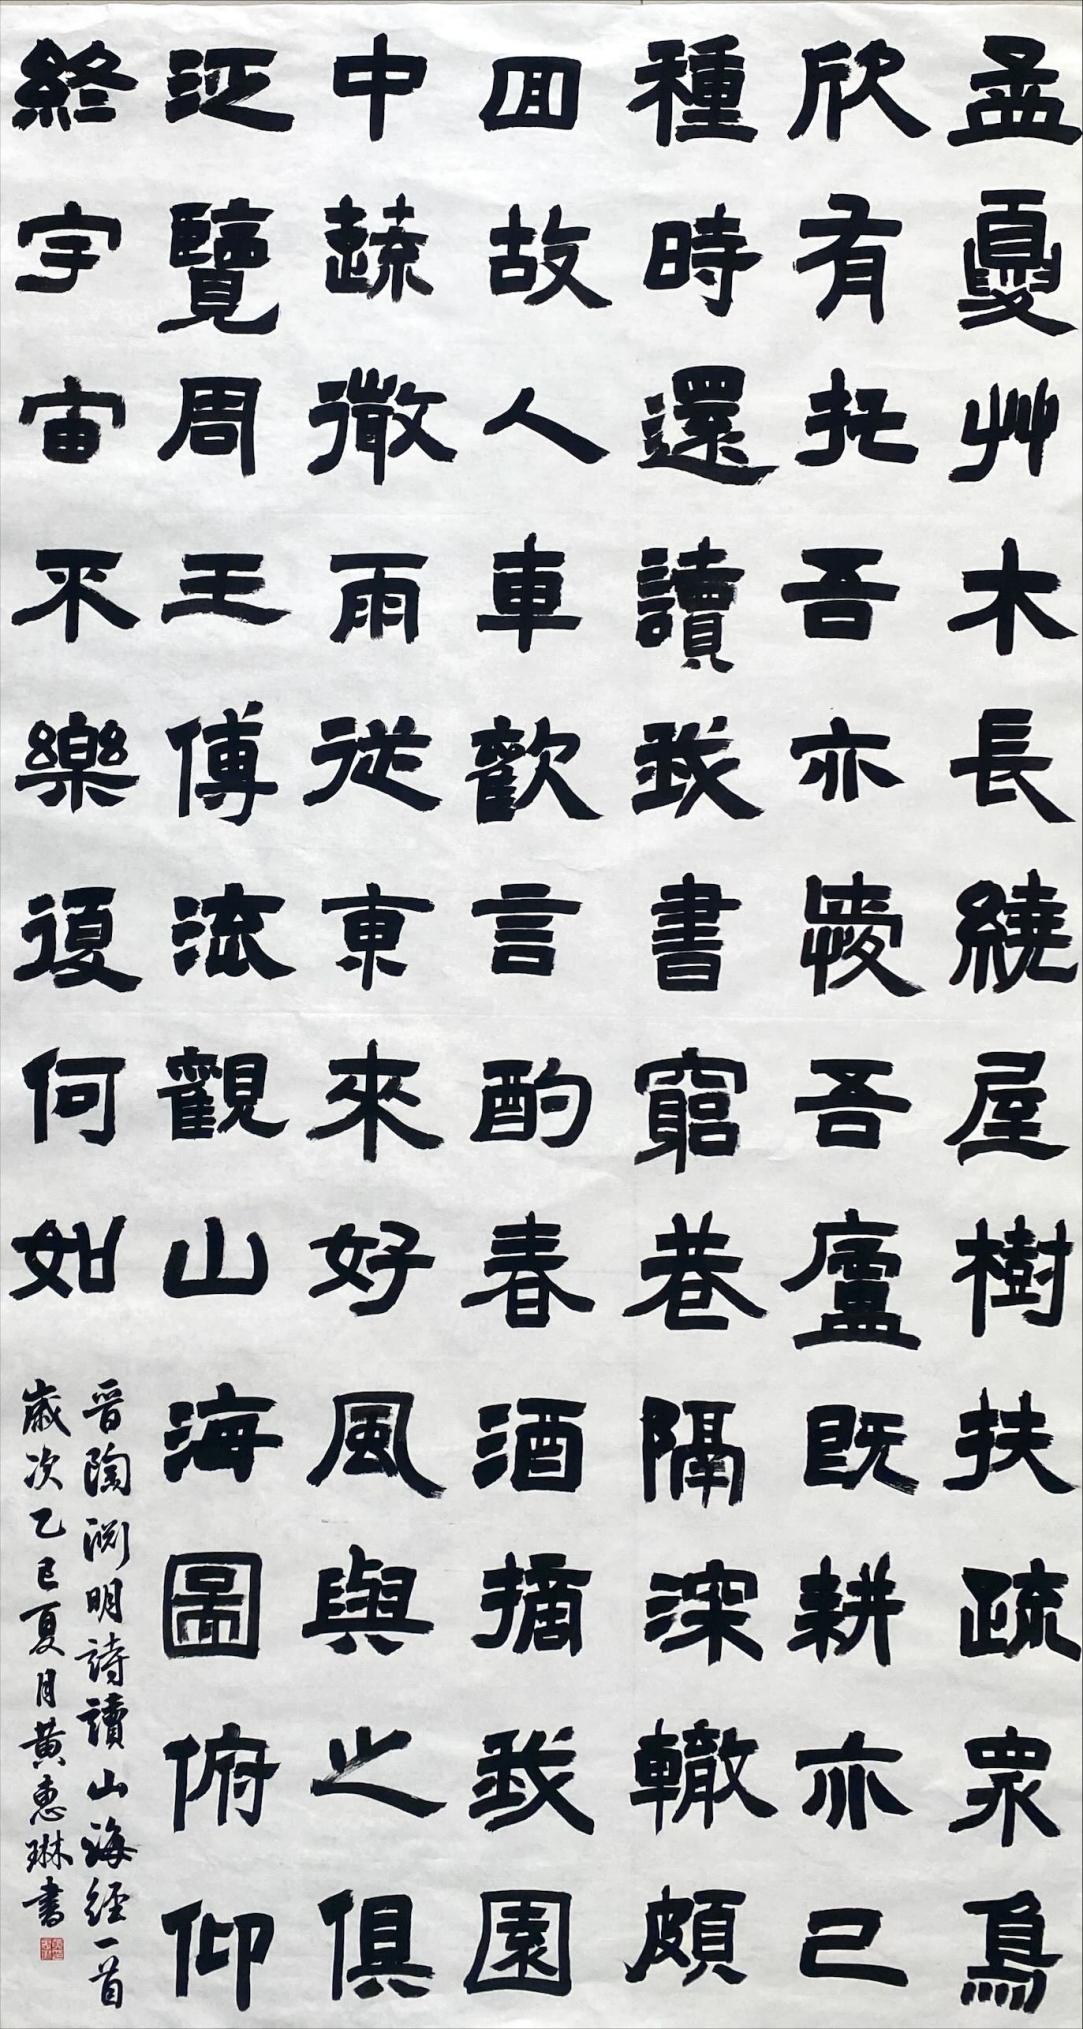 孟夏艸木長繞屋樹扶疏眾鳥
欣有託吾亦愛吾廬既耕亦已
種時還讀我書窮巷隔深轍頗
回故人車歡言酌春酒摘我園
中蔬微雨從東來好風與之俱
泛覽周王傳流觀山海圖俯仰
終宇宙不樂復何如
晉陶淵明詩讀山海經一首
歲次乙巳夏月黃惠琳書